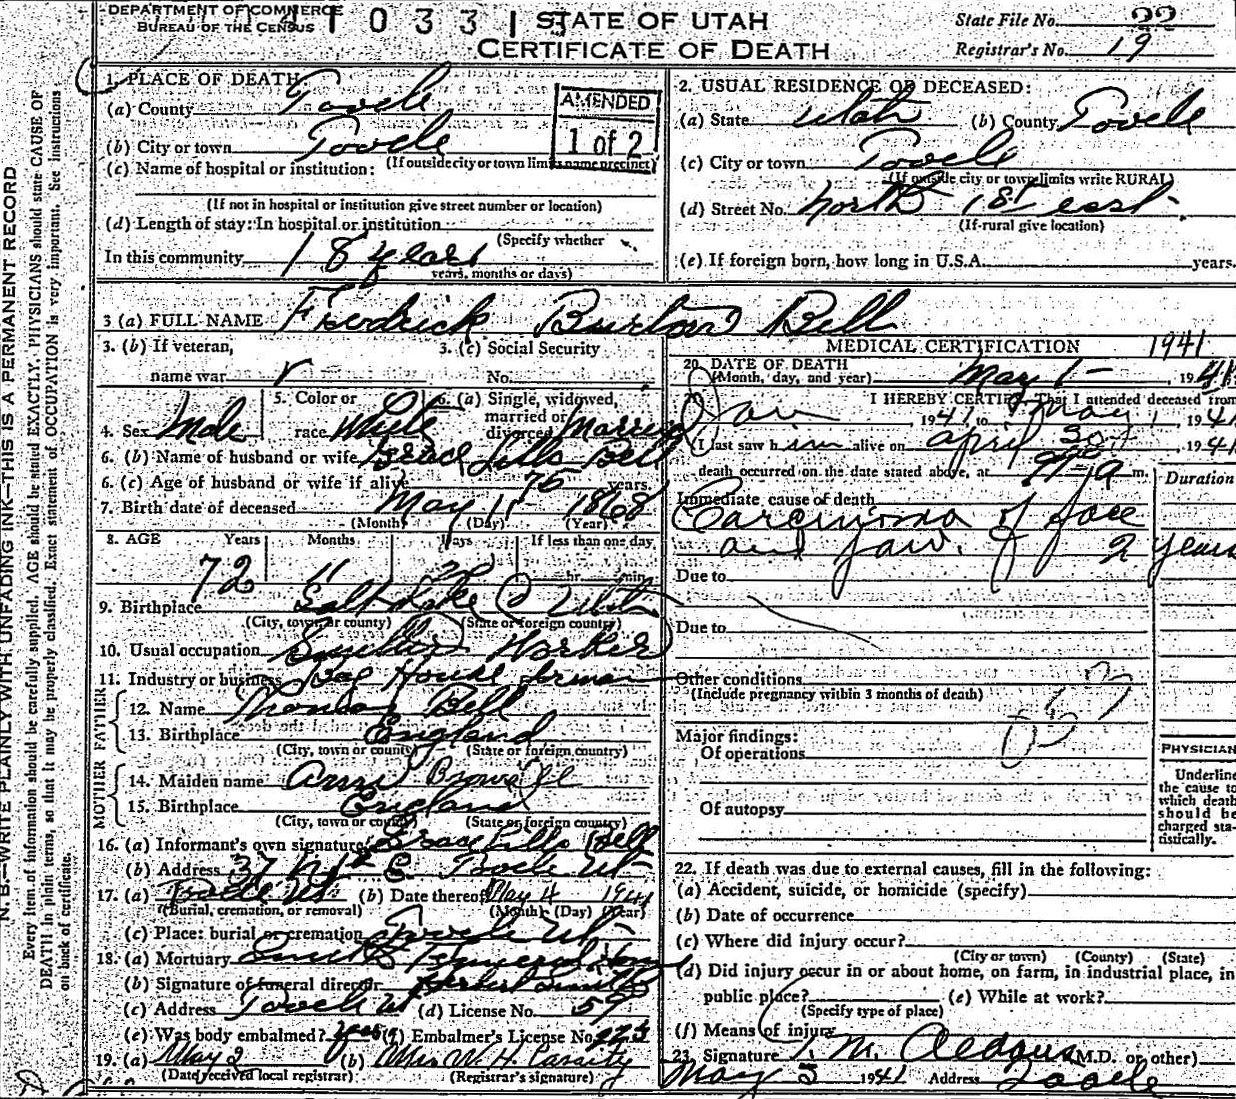 DEPARTMENT OF COMMERCE
BUREAU OF THE CENSUS
STATE OF UTAH
CERTIFICATE OF DEATH
State File No. 22
Registrar's No. 19
1. PLACE OF DEATH:
(a) County Tooele
(b) City or town Tooele
(If outside city or town limits name precinct)
(c) Name of hospital or institution:
(If not in hospital or institution give street number or location)
(d) Length of stay: In hospital or institution
(Specify whether
In this community 18 years
years, months or days)
AMENDED
1 of 2
2. USUAL RESIDENCE OF DECEASED:
(a) State Utah (b) County Tooele
(c) City or town Tooele
(If outside city or town limits write RURAL)
(d) Street No. North 1st east
(If rural give location)
(e) If foreign born, how long in U.S.A. years.
3 (a) FULL NAME Fredrick Burton Bell
3. (b) If veteran,
name war
3. (c) Social Security
No.
4. Sex Male
5. Color or
race White
6. (a) Single, widowed,
married or
divorced Married
6. (b) Name of husband or wife Grace Lills Bell
6. (c) Age of husband or wife if alive 75 years.
7. Birth date of deceased May 11 1868
(Month) (Day) (Year)
8. AGE Years Months Days If less than one day
72 11 hr. min.
9. Birthplace Salt Lake C Utah
(City, town, or county) (State or foreign country)
10. Usual occupation Smelter Worker
11. Industry or business Bag House forman
FATHER
12. Name Thomas Bell
13. Birthplace England
(City, town or county) (State or foreign country)
MOTHER
14. Maiden name Ann
15. Birthplace England
(City, town or county) (State or foreign country)
16. (a) Informant's own signature Grace Lills Bell
(b) Address 37 N 1st E. Tooele Ut
17. (a) Tooele Ut. (b) Date thereof May 4 1941
(Burial, cremation, or removal) (Month) (Day) (Year)
(c) Place: burial or cremation Tooele Ut
18. (a) Mortuary Funeral Home
(b) Signature of funeral director Herbert
(c) Address Tooele Ut (d) License No. 59
(e) Was body embalmed? yes (f) Embalmer's License No. 223
19. (a) May 2 (b) Mrs W. H. Cassity
(Date received local registrar) (Registrar's signature)
MEDICAL CERTIFICATION 1941
20. DATE OF DEATH
(Month, day, and year) May 1 - , 1941
21. I HEREBY CERTIFY, That I attended deceased from
Jan , 1941, to May 1, 1941
I last saw him alive on April 30, 1941
death occurred on the date stated above, at m.
Duration
Immediate cause of death
Carcinoma of face
and jaw. 2 years
Due to
Due to
Other conditions
(Include pregnancy within 3 months of death)
Major findings:
Of operations
Of autopsy
PHYSICIAN
Underline
the cause to
which death
should be
charged sta-
tistically.
22. If death was due to external causes, fill in the following:
(a) Accident, suicide, or homicide (specify)
(b) Date of occurrence
(c) Where did injury occur?
(City or town) (County) (State)
(d) Did injury occur in or about home, on farm, in industrial place, in
public place? (e) While at work?
(Specify type of place)
(f) Means of injury
23. Signature M. (M.D. or other)
May 3 1941 Address Tooele
N. B.—WRITE PLAINLY WITH UNFADING INK—THIS IS A PERMANENT RECORD
Every item of information should be carefully supplied. AGE should be stated EXACTLY. PHYSICIANS should state CAUSE OF
DEATH in plain terms, so that it may be properly classified. Exact statement of OCCUPATION is very important. See instructions
on back of certificate.